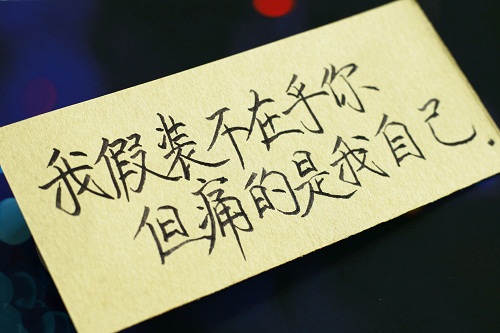 我假装不在乎你
但痛的是我自己.